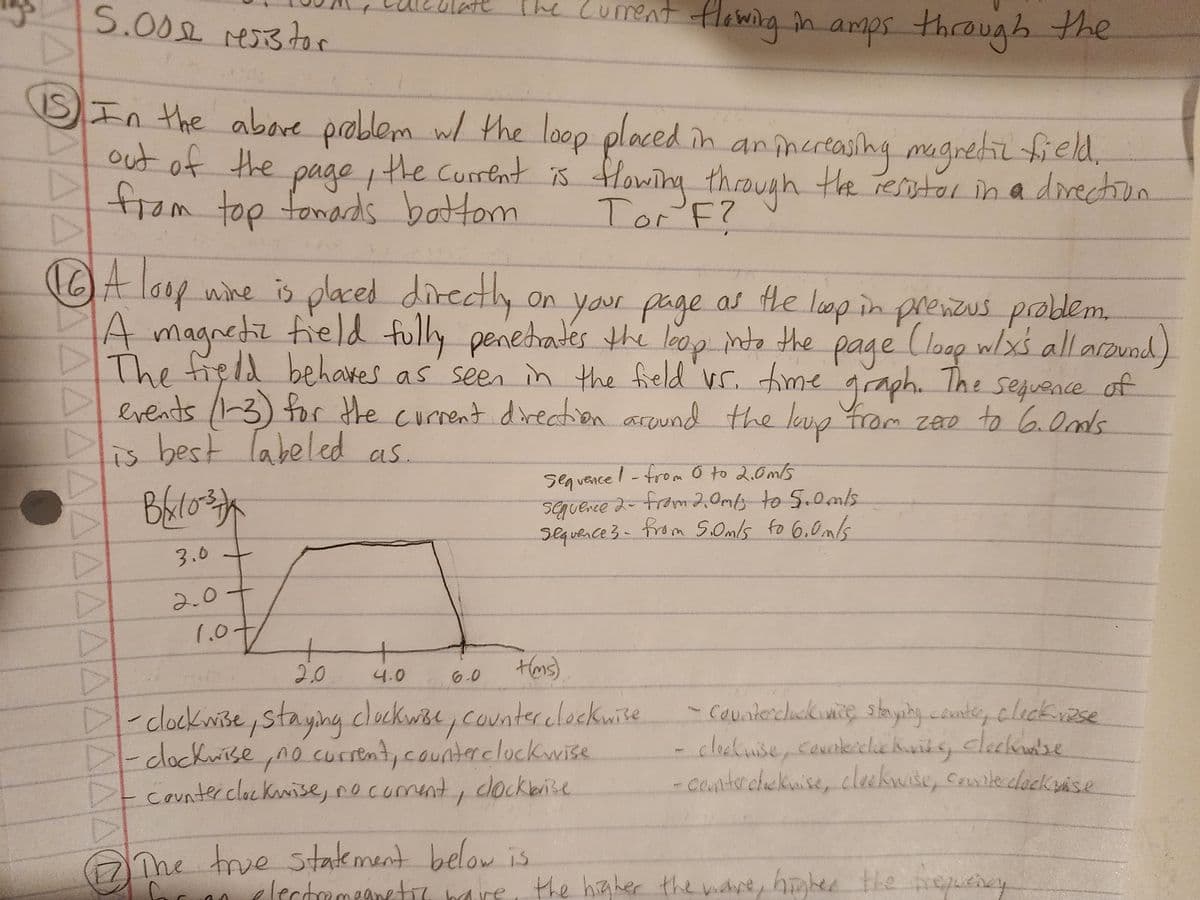 The current flowing in amps through the
5.00Ω resistor
15) In the above problem w/ the loop placed in an increasing magnetic field.
out of the page, the current is flowing through the resistor in a direction
from top towards bottom T or F?
16) A loop wire is placed directly on your page as the loop in previous problem.
A magnetic field fully penetrates the loop into the page (loop w/x's all around)
The field behaves as seen in the field vs. time graph. The sequence of
events (1-3) for the current direction around the loop from zero to 6.0m/s
is best labeled as.
sequence 1 - from 0 to 2.0m/s
sequence 2 - from 2.0m/s to 5.0m/s
sequence 3 - from 5.0m/s to 6.0m/s
B(x10⁻³)
3.0
2.0
1.0
2.0 4.0 6.0 t(ms)
- clockwise, staying clockwise, counterclockwise
- clockwise, no current, counterclockwise
- counterclockwise, no current, clockwise
- counterclockwise, staying counter, clockwise
- clockwise, counterclockwise, clockwise
- counterclockwise, clockwise, counterclockwise
17) The true statement below is
electromagnetic wave, the higher the wave, higher the frequency